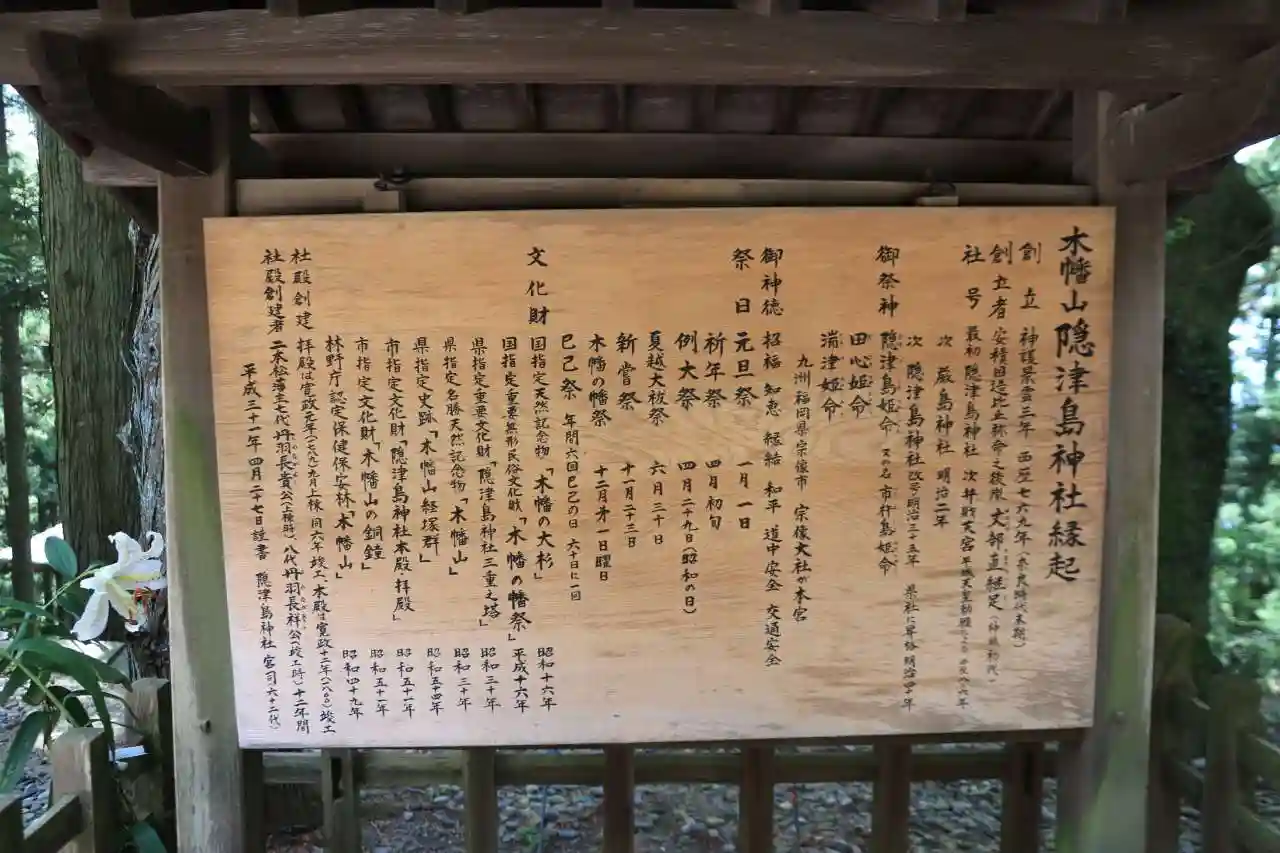 木幡山隠津島神社縁起
創立 神護景雲三年 西歴七六九年(奈良時代末期)
創立者 安積国造比止祢命之後胤 丈部直継足(神職初代)
社号 最初 隠津島神社 次 弁財天宮
次 厳島神社 明治二年
次 隠津島神社改号明治三十五年 県社に昇格明治四十年
御祭神 隠津島姫命 又の名 市杵島姫命
田心姫命
湍津姫命
九州福岡県宗像市 宗像大社が本宮
御神徳 招福 知恵 縁結 和平 道中安全 交通安全
祭日 元旦祭 一月一日
祈年祭 四月初旬
例大祭 四月二十九日(昭和の日)
夏越大祓祭 六月三十日
新嘗祭 十一月二十三日
木幡の幡祭 十二月才一日曜日
巳己祭 年間六回巳己の日 六十日に一回
文化財 国指定天然記念物「木幡の大杉」 昭和十六年
国指定重要無形民俗文化財「木幡の幡祭」 平成十六年
県指定重要文化財「隠津島神社三重之塔」 昭和三十年
県指定名勝天然記念物「木幡山」 昭和三十年
県指定史跡「木幡山経塚群」 昭和五十四年
市指定文化財「隠津島神社本殿・拝殿」 昭和五十一年
市指定文化財「木幡山の銅鐘」 昭和五十一年
林野庁認定保健保安林「木幡山」 昭和四十九年
社殿創建 拝殿は寛政元年(一七八九)七月上棟 同六年竣工、本殿は寛政十二年(一八〇〇)竣工
社殿創建者 二本松藩主七代丹羽長貴公(上棟時)、八代丹羽長祥公(竣工時)十二年間
平成三十一年四月二十七日謹書 隠津島神社 宮司六十二代)